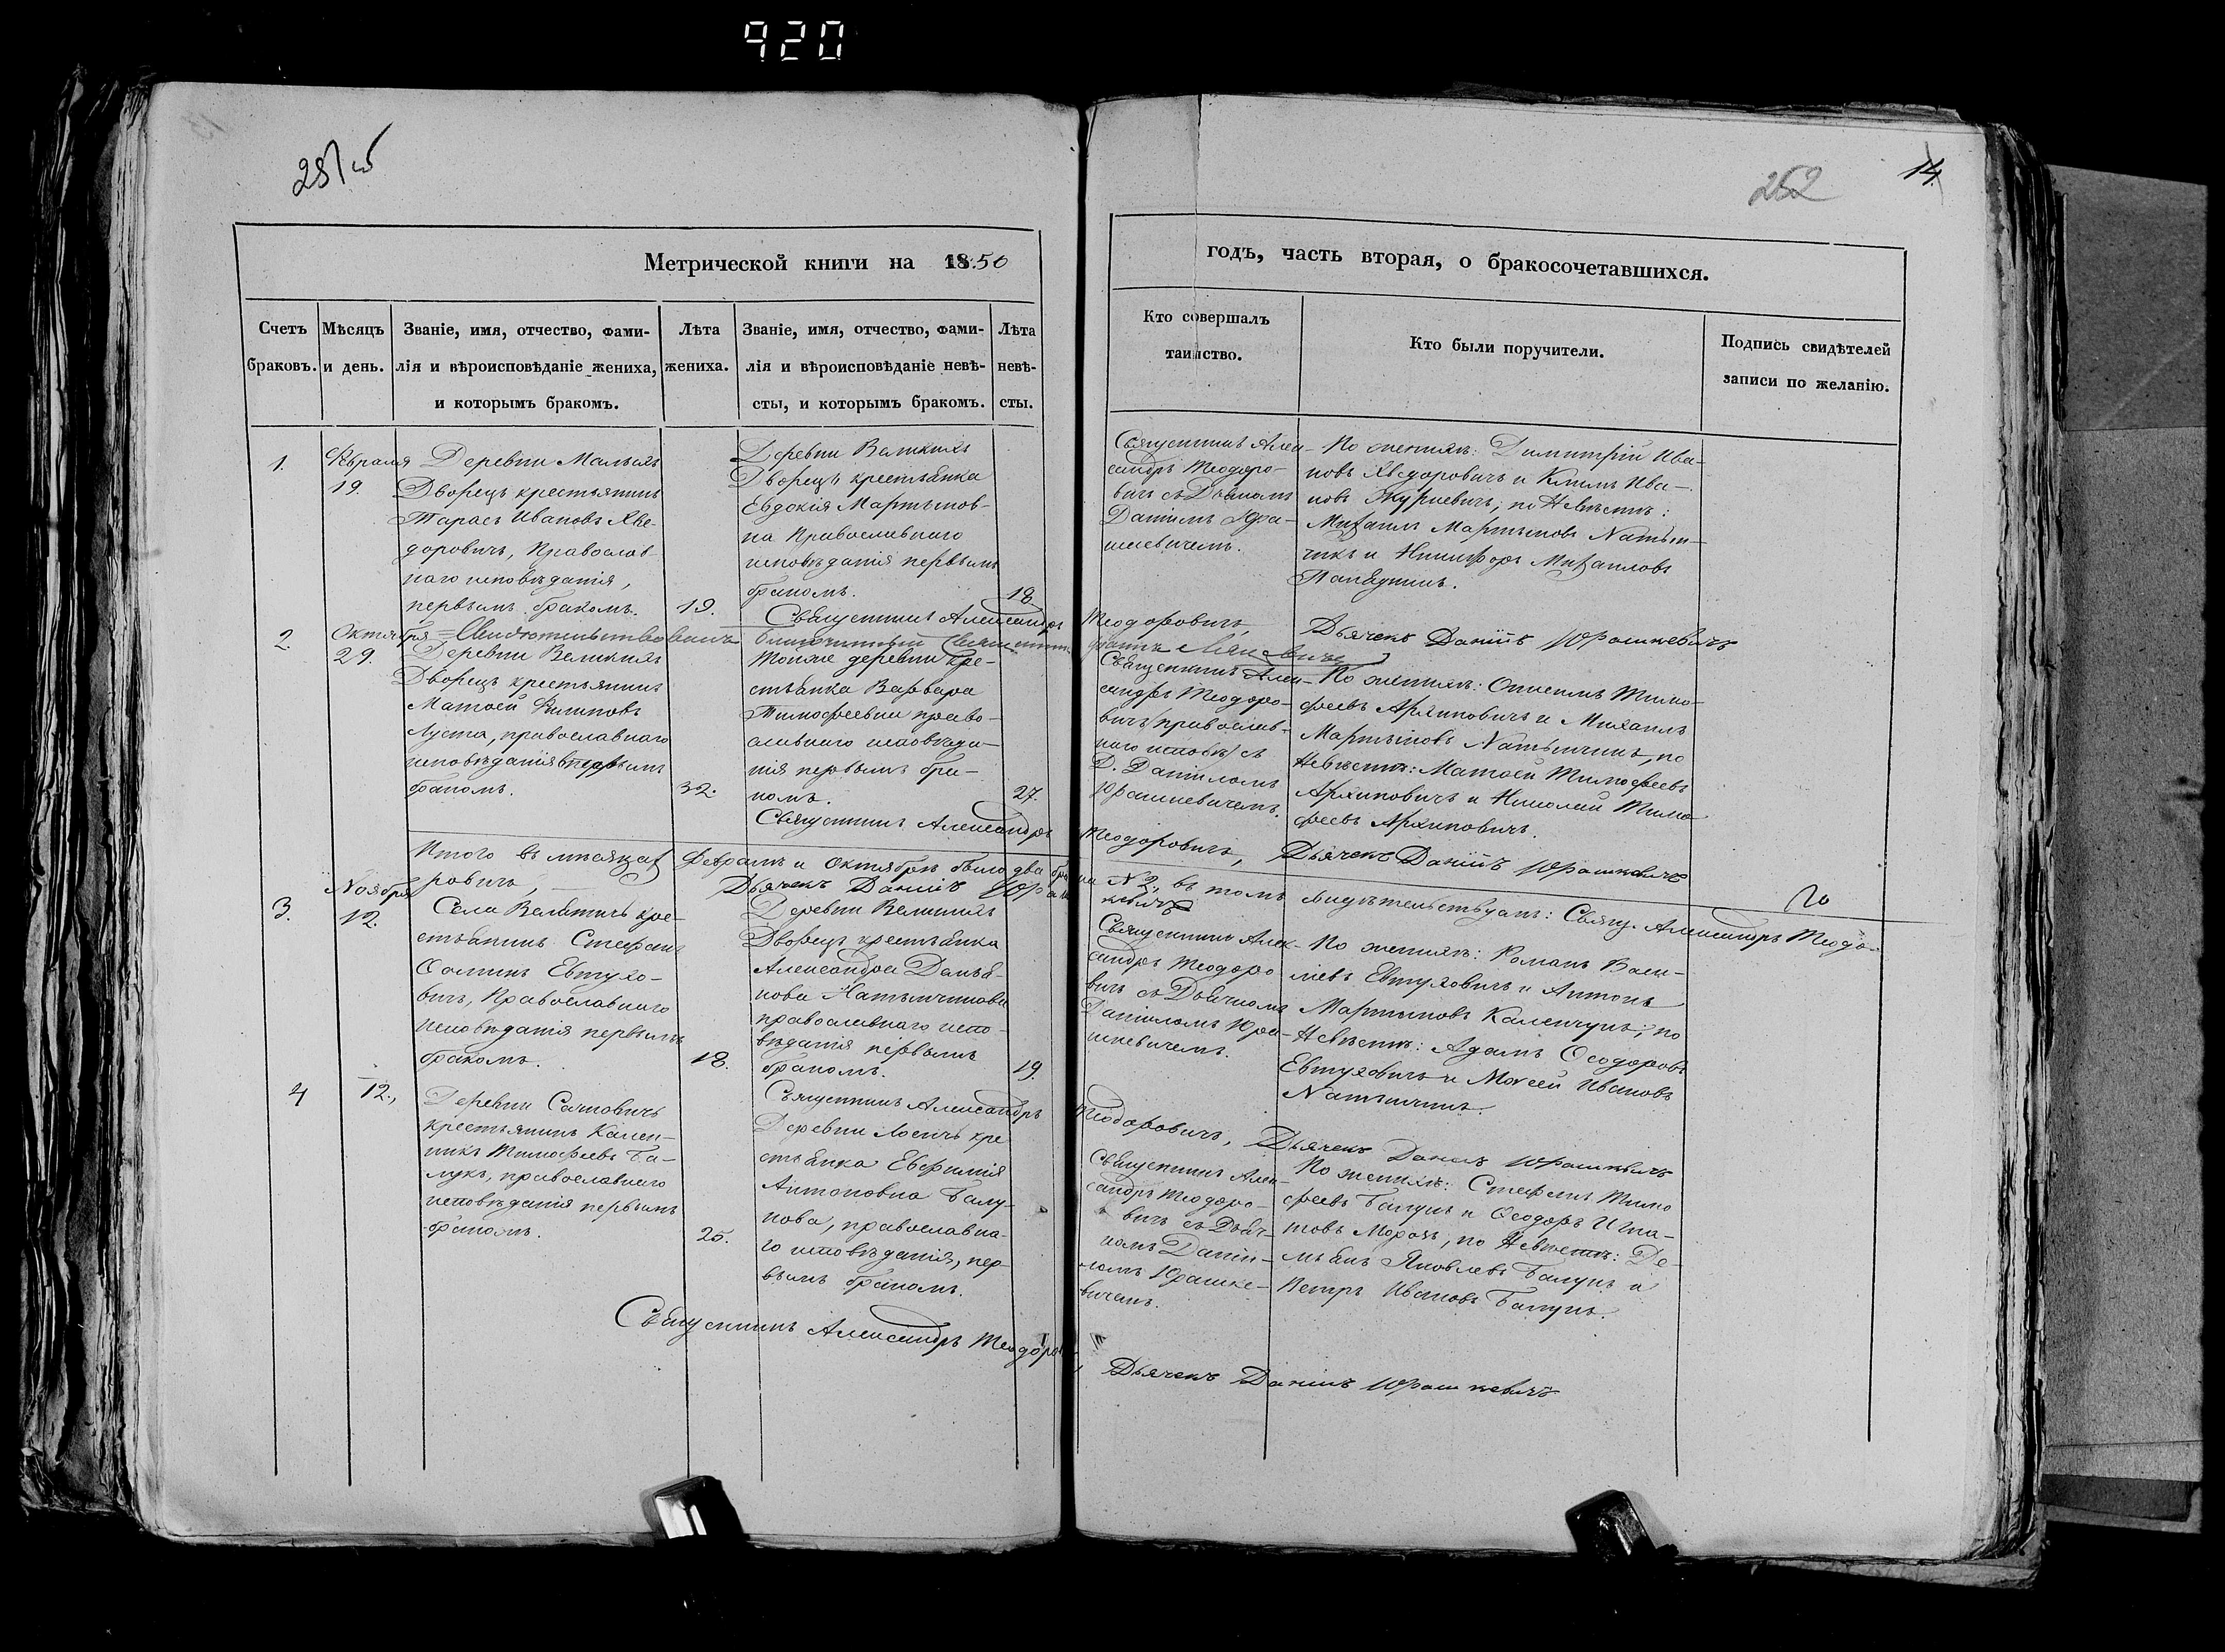 920
252
14
Метрической книги на 1850
годъ, часть вторая, о бракосочетавшихся.
Счетъ
браковъ.
Мѣсяцъ
и день.
Званіе, имя, отчество, фами-
лія и вѣроисповѣданіе жениха,
и которымъ бракомъ.
Лѣта
жениха.
Званіе, имя, отчество, фами-
лія и вѣроисповѣданіе невѣ-
сты, и которымъ бракомъ.
Лѣта
невѣ-
сты.
Кто совершалъ
таинство.
Кто были поручители.
Подпись свидѣтелей
записи по желанію.
1.
Февраля
19.
Деревни Малыхъ
Дворецъ крестьянинъ
Тарасъ Ивановъ Хве-
доровичъ, Православ-
наго исповѣданія,
первымъ бракомъ.
19.
Деревни Великихъ
Дворецъ крестьянка
Евдокія Мартынов-
на Православнаго
исповѣданія первымъ
бракомъ.
18
Священникъ Алек-
сандръ Теодоро-
вичъ съ Дьячкомъ
Даніиломъ Юра-
шкевичемъ.
По женихѣ: Димитрій Ива-
новъ Хведоровичъ и Климъ Ива-
новъ; по Невѣстѣ:
Михаилъ Мартыновъ Натын-
чикъ и Никифоръ Михаиловъ
Священникъ Александръ Теодоровичъ,
Дьячекъ Даніилъ Юрашкевичъ
2.
Октября
29.
Деревни Великихъ
Дворецъ крестьянинъ
Матѳей Филиповъ
Луста, православнаго
исповѣданія первымъ
бракомъ.
32.
Тойже деревни кре-
стьянка Варвара
Тимофеевна право-
славнаго исповѣда-
нія первымъ бра-
комъ.
27.
Священникъ Алек-
сандръ Теодоро-
вичъ православ-
наго исповѣ. съ
Д. Даніиломъ
Юрашкевичемъ.
По женихѣ: Тимо-
феевъ Архиповичъ и Михаилъ
Мартыновъ Натынчикъ, по
Невѣстѣ: Матѳей Тимофеевъ
Архиповичъ и Николай Тимо-
феевъ Архиповичъ.
Священникъ Александръ Теодоровичъ, Дьячекъ Даніилъ Юрашкевичъ
Итого въ мѣсяцахъ Февралѣ и Октябрѣ было два брака № 2, въ томъ свидѣтельствуемъ: Свящ. Александръ Теодо-
ровичъ, Дьячекъ Даніилъ Юрашкевичъ
3.
Ноября
12.
Села Велятичъ кре-
стьянинъ Стефанъ
Ѳоминъ Евтухо-
вичъ, Православнаго
исповѣданія первымъ
бракомъ.
18.
Деревни Великихъ
Дворецъ крестьянка
Александра Демья-
нова Натынчикова
православнаго испо-
вѣданія первымъ
бракомъ.
19.
Священникъ Алек-
сандръ Теодоро-
вичъ съ Дьячкомъ
Даніиломъ Юра-
шкевичемъ.
По женихѣ: Романъ Васи-
льевъ Евтуховичъ и Антонъ
Мартыновъ Каленчукъ; по
Невѣстѣ: Адамъ Ѳеодоровъ
Евтуховичъ и Моѵсей Ивановъ
Натынчикъ.
Священникъ Александръ Теодоровичъ, Дьячекъ Даніилъ Юрашкевичъ
4
12.
Деревни
крестьянинъ Кален-
никъ Тимофеевъ Ба-
лукъ, православнаго
исповѣданія первымъ
бракомъ.
25.
Деревни Лосичъ кре-
стьянка Евфимія
Антоновна Балу-
кова, православна-
го исповѣданія, пер-
вымъ бракомъ.
Священникъ Алек-
сандръ Теодоро-
вичъ съ Дьяч-
комъ Даніи-
ломъ Юрашке-
вичемъ.
По женихѣ: Стефанъ Тимо-
феевъ Балукъ и Ѳеодоръ Игна-
товъ Морозъ, по Невѣстѣ: Де-
мьянъ Яковлевъ Балукъ и
Петръ Ивановъ Балукъ.
Священникъ Александръ Теодорович
Дьячекъ Даніилъ Юрашкевичъ